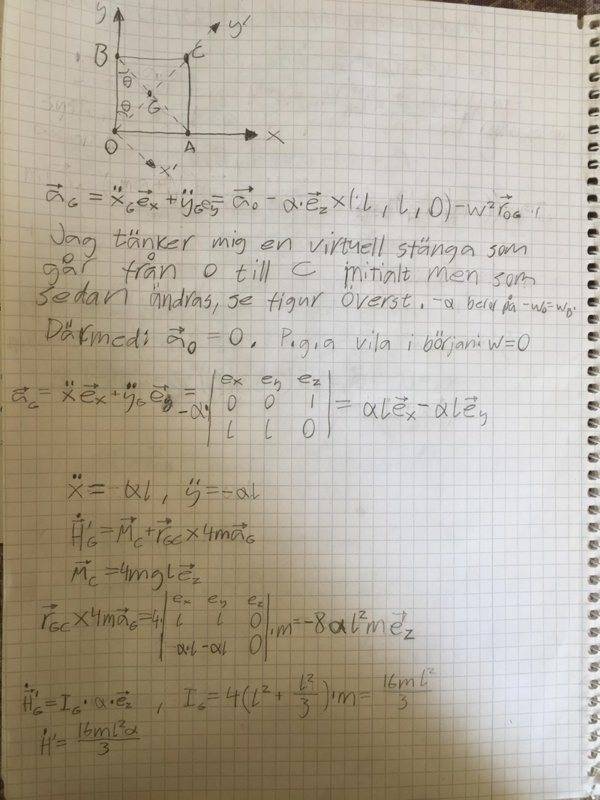 y
y'
B
C
θ
G
θ
O
A
x
x'
a⃗_G = ẍ_G e⃗_x + ÿ_G e⃗_y = a⃗_0 - α·e⃗_z × (l, l, 0) - w² r⃗_OG
Jag tänker mig en virtuell stånga som
går från O till C initialt men som
sedan ändras, se figur överst. -α beror på -w_0 = w_D.
Därmed: a⃗_0 = 0. P.g.a vila i början: w=0
a⃗_G = ẍ e⃗_x + ÿ_G e⃗_y = -α· | e_x e_y e_z | = αl e⃗_x - αl e⃗_y
0 0 1
l l 0
ẍ = -αl, ÿ = -αl
H⃗̇'_G = M⃗_C + r⃗_GC × 4m a⃗_G
M⃗_C = 4mgl e⃗_z
r⃗_GC × 4m a⃗_G = 4· | e_x e_y e_z | ·m = -8αl²m e⃗_z
l l 0
α·l -αl 0
H⃗̇'_G = I_G·α·e⃗_z , I_G = 4(l² + l²/3)·m = 16ml²/3
Ḣ' = 16ml²α/3